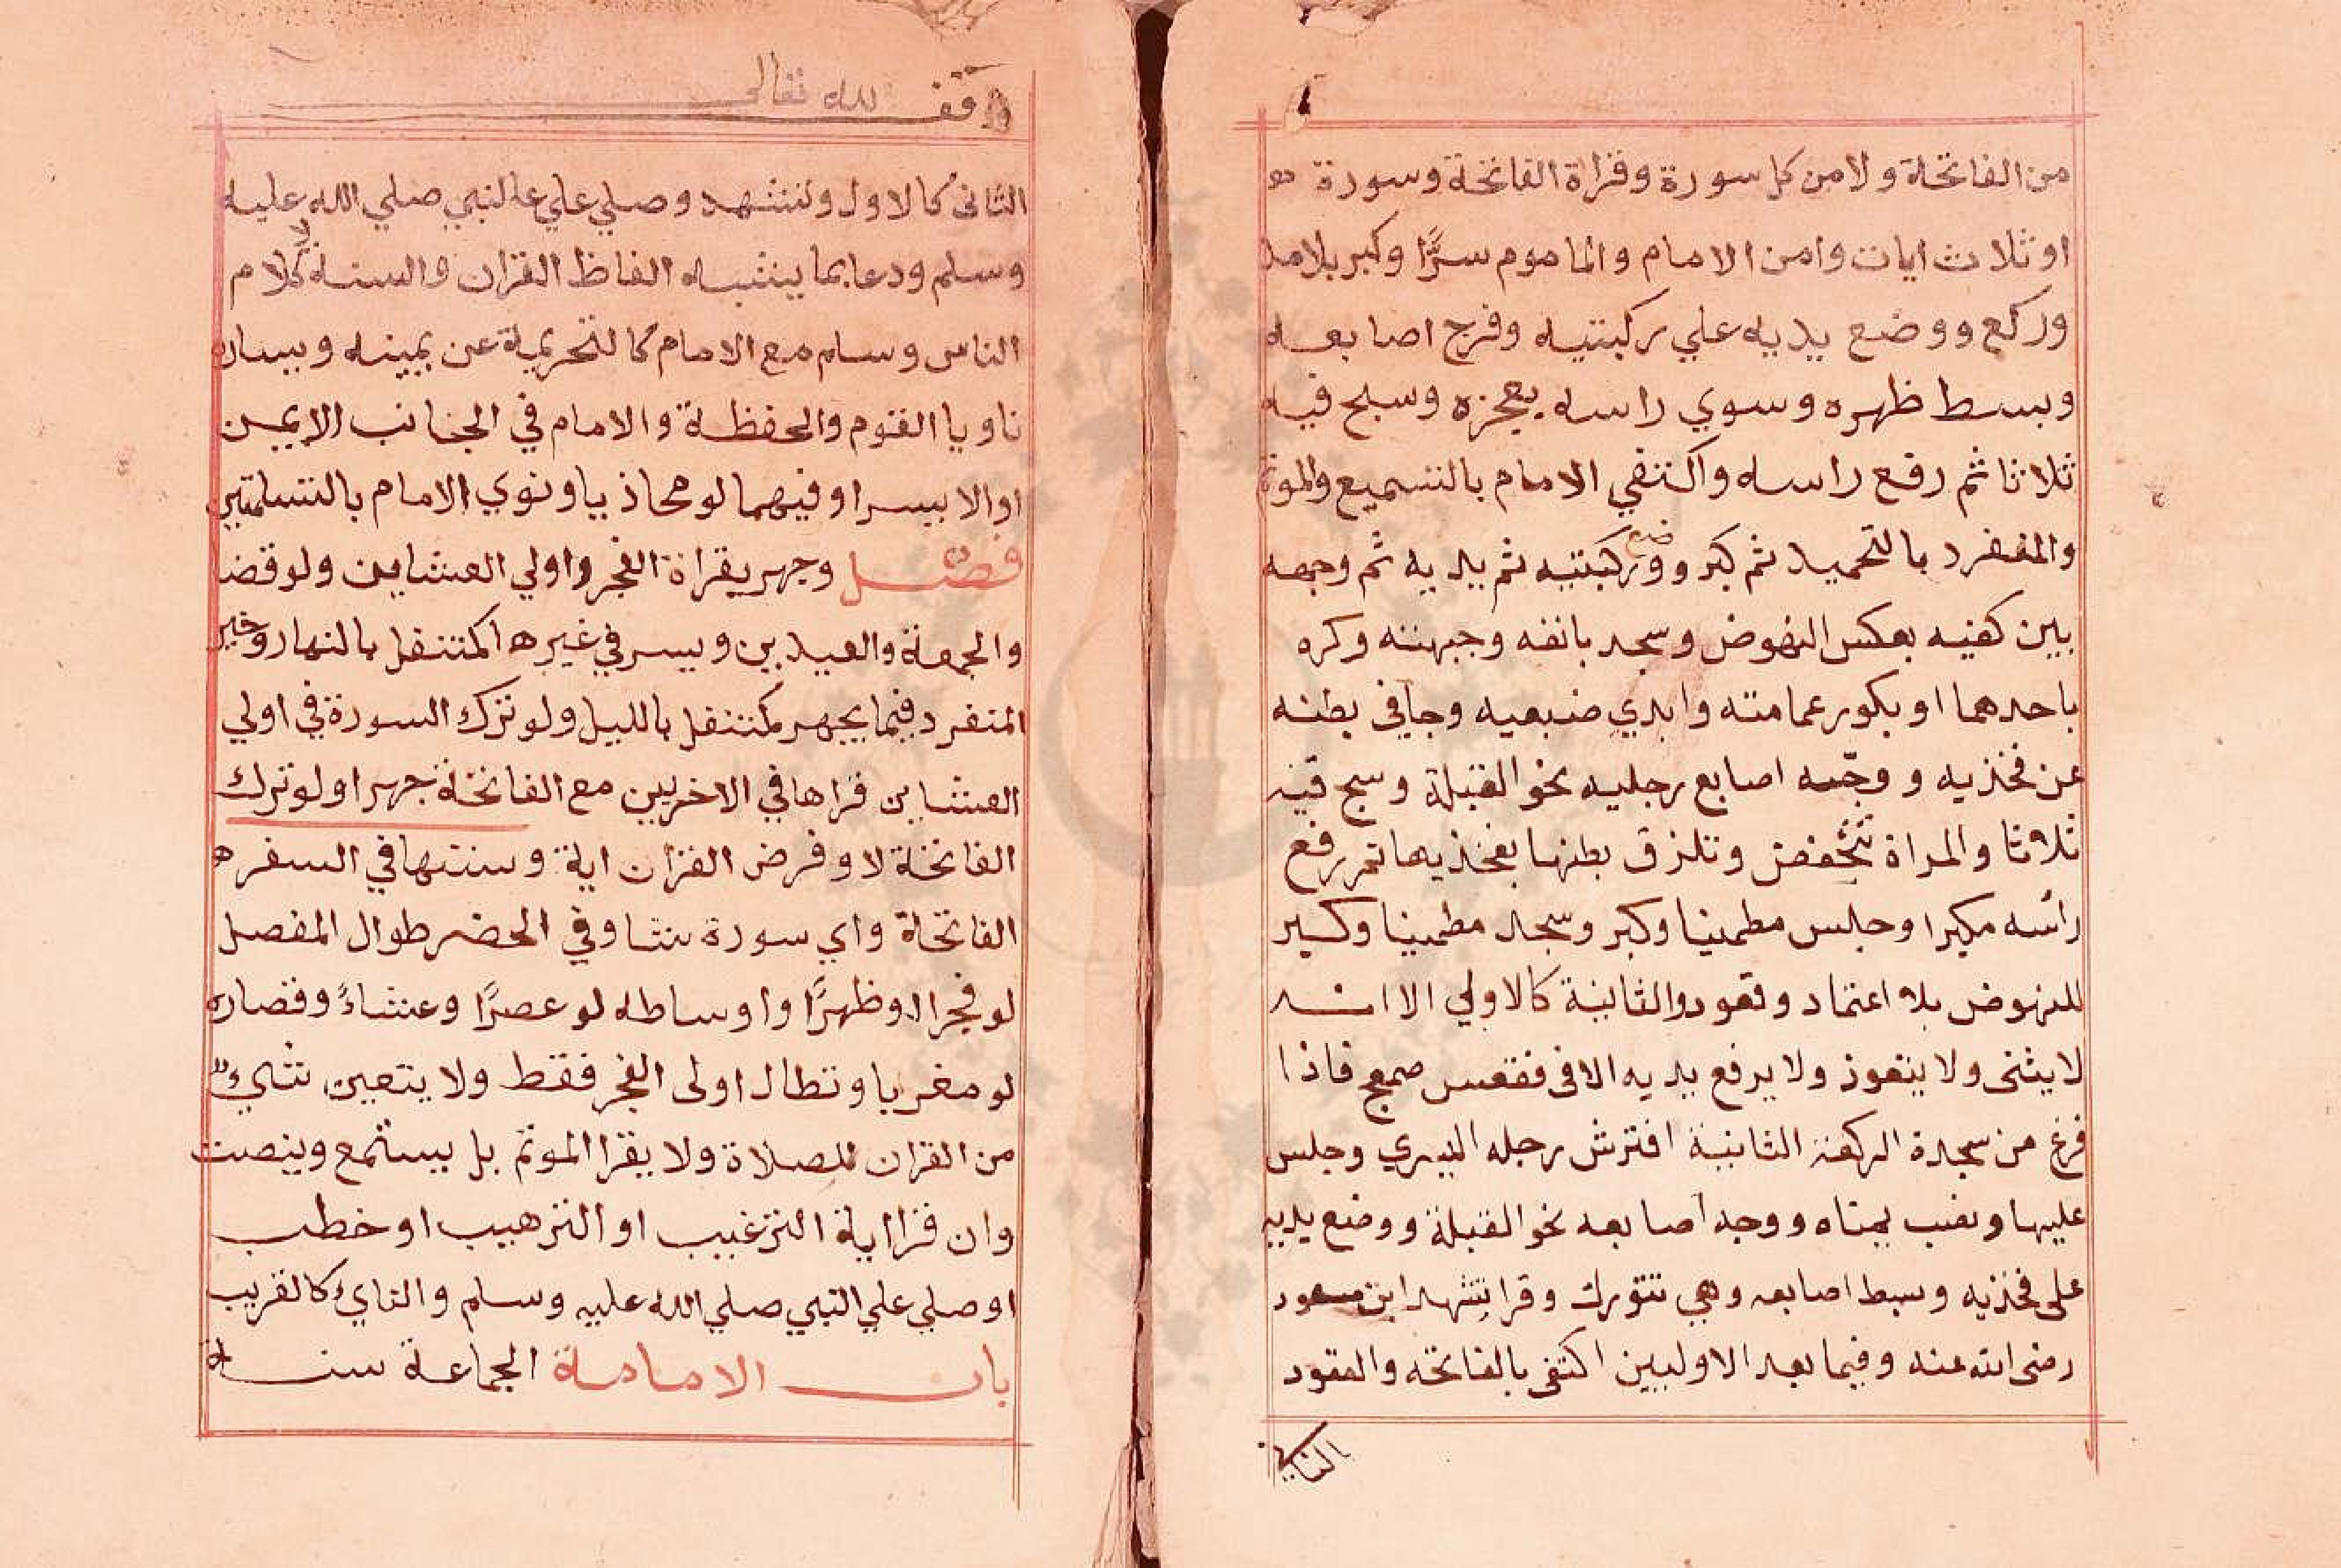 من الفاتحة ولا من كل سورة وقراة الفاتحة وسورة
او ثلاث ايات وامن الامام والماموم سرًّا وكبر بلا مد
وركع ووضع يديه علي ركبتيه وفرج اصابعه
وبسط ظهره وسوي راسه بعجزه وسبح فيه
ثلاثا ثم رفع راسه واكتفي الامام بالتسميع والموتم
والمنفرد بالتحميد ثم كبر ووضع ركبتيه ثم يديه ثم وجهه
بين كفيه بعكس النهوض وسجد بانفه وجبهته وكره
باحدهما او بكور عمامته وابدي ضبعيه وجافى بطنه
عن فخذيه ووجّه اصابع رجليه نحو القبلة وسبح فيه
ثلاثا والمراة تنخفض وتلزق بطنها بفخذيها ثم رفع
رأسه مكبرا وجلس مطمينا وكبر وسجد مطمينا وكبر
للنهوض بلا اعتماد وقعود والثانية كالاولي الا انه
لا يثنى ولا يتعوذ ولا يرفع يديه الا فى فقعس صمعج فاذا
فرغ من سجدة الركعة الثانية افترش رجله اليسري وجلس
عليها ونصب يمناه ووجه اصابعه نحو القبلة ووضع يديه
على فخذيه وبسط اصابعه وهي تتورك وقرا تشهد ابن مسعود
رضى الله عنه وفيما بعد الاوليين اكتفى بالفاتحه والقعود
الثاني
وقف لله تعالى
الثانى كالاول وتشهد وصلي علي النبي صلي الله عليه
وسلم ودعا بما يشبه الفاظ القران والسنه لا كلام
الناس وسلم مع الامام كالتحريمة عن يمينه ويساره
ناويا القوم والحفظة والامام في الجانب الايمن
او الايسر او فيهما لو محاذيا ونوي الامام بالتسلمتين
فصل وجهر بقراة الفجر واولي العشاين ولو قضا
والجمعة والعيدين ويسر في غيرها كمتنفل بالنهار وخير
المنفرد فيما يجهر كمتنفل بالليل ولو ترك السورة في اولي
العشاين قراها في الاخريين مع الفاتحة جهرا ولو ترك
الفاتحة لا وفرض القران اية وسنتها في السفر
الفاتحة واي سورة شا وفي الحضر طوال المفصل
لو فجرا او ظهرًا واوساطه لو عصرًا وعشاءً وقصاره
لو مغربا وتطال اولى الفجر فقط ولا يتعين شيءٌ
من القران للصلاة ولا يقرا الموتم بل يستمع وينصت
وان قرا اية الترغيب او الترهيب او خطب
او صلي علي النبي صلي الله عليه وسلم والناي كالقريب
باب الامامة الجماعة سنة